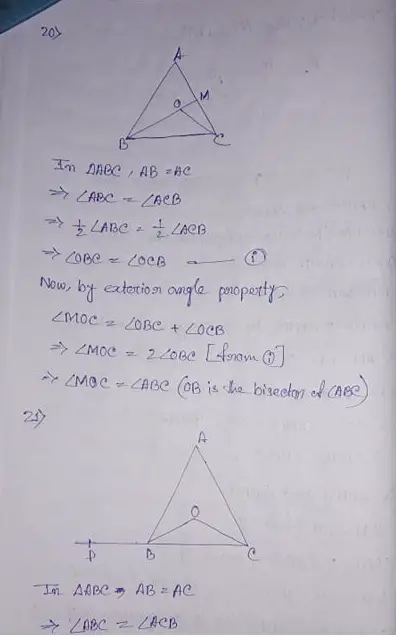 20>
A
O
M
B
C
In ΔABC, AB = AC
⇒ ∠ABC = ∠ACB
⇒ 1/2 ∠ABC = 1/2 ∠ACB
⇒ ∠OBC = ∠OCB — (i)
Now, by exterior angle property,
∠MOC = ∠OBC + ∠OCB
⇒ ∠MOC = 2∠OBC [from (i)]
⇒ ∠MOC = ∠ABC (OB is the bisector of ∠ABC)
21>
A
O
D
B
C
In ΔABC, AB = AC
⇒ ∠ABC = ∠ACB